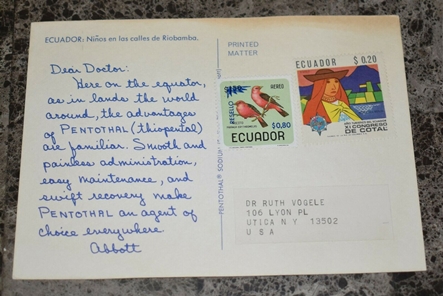 ECUADOR: Niños en las calles de Riobamba.
Dear Doctor:
Here on the equator,
as in lands the world
around, the advantages
of PENTOTHAL (thiopental)
are familiar. Smooth and
painless administration,
easy maintenance, and
swift recovery make
PENTOTHAL an agent of
choice everywhere
Abbott
PENTOTHAL® SODIUM
PRINTED
MATTER
RESELLO
AEREO
ECUADOR
$0,80
ECUADOR $ 0,20
XI CONGRESO
DE COTAL
DR RUTH VOGELE
106 LYON PL
UTICA NY 13502
U S A